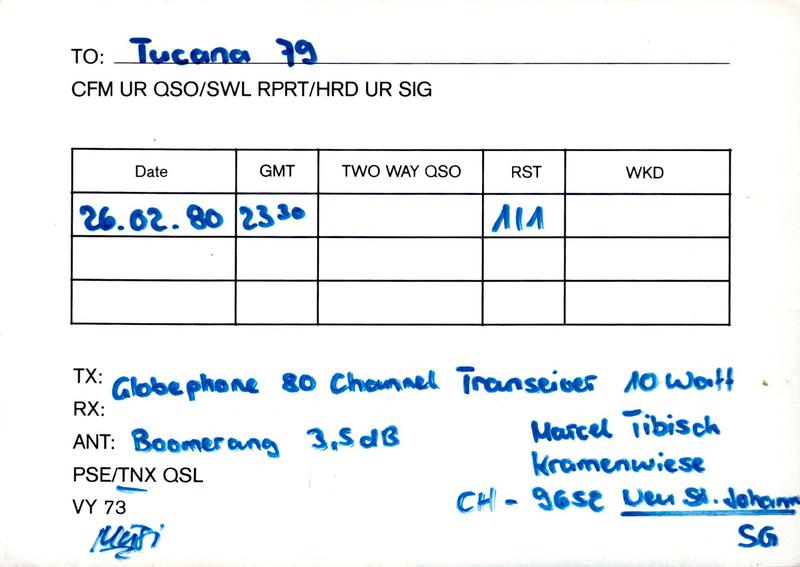 TO: Tucana 79
CFM UR QSO/SWL RPRT/HRD UR SIG
Date GMT TWO WAY QSO RST WKD
26.02.80 23 30 1/1
TX: Globephone 80 Channel Transeiver 10 Watt
RX:
ANT: Boomerang 3,5 dB
Marcel Tibisch
PSE/TNX QSL
Kramenwiese
VY 73
CH - 9652 Neu St. Johann
SG